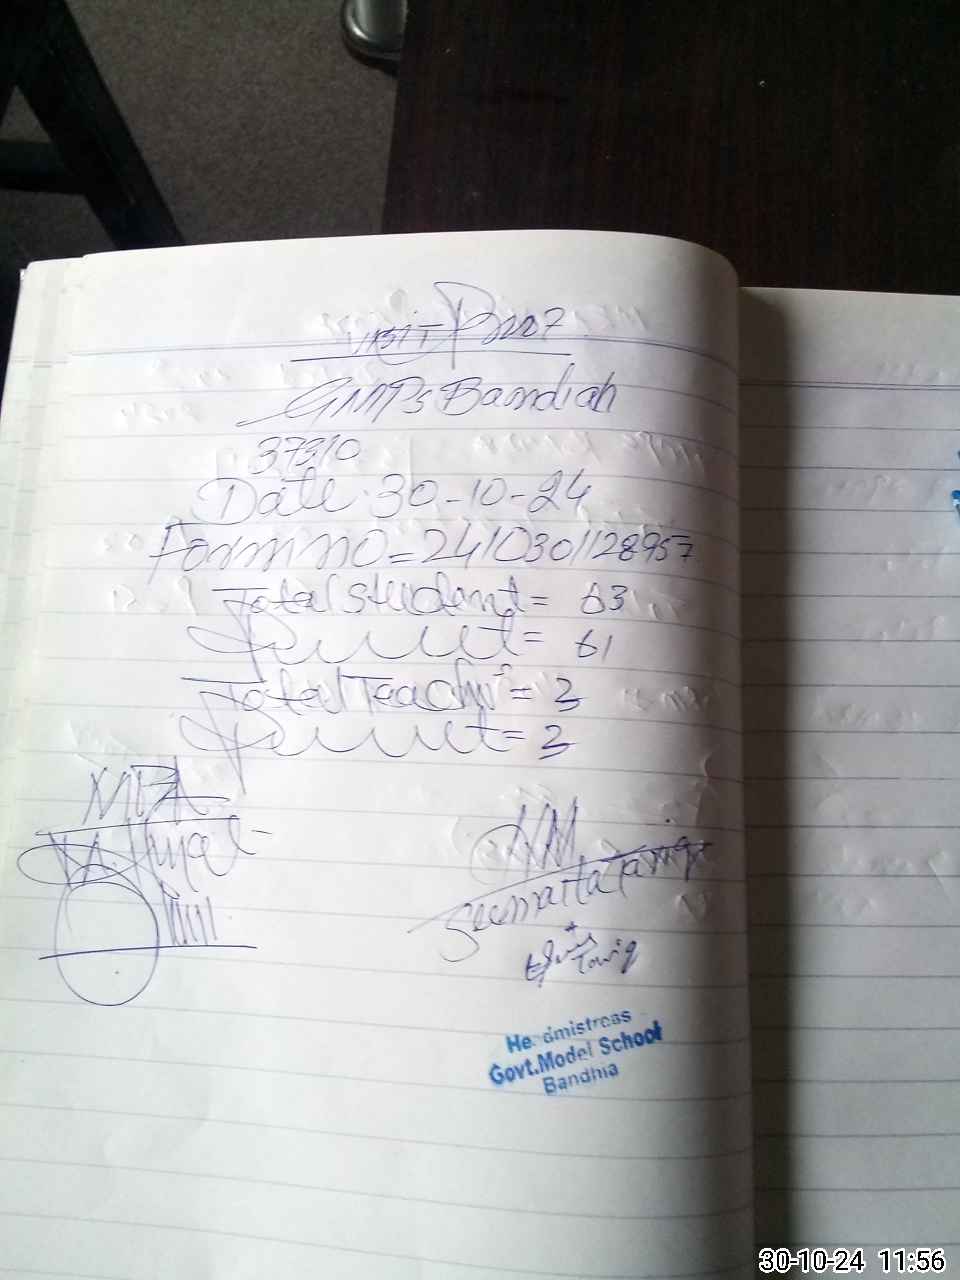 Visit Proof
GMPS Bandiah
37310
Date 30-10-24
Form no = 2410301128957
Total Student = 63
Present = 61
Total Teacher = 3
Present = 3
MEA
HM
Tariq
Headmistress
Govt.Model School
Bandhia
30-10-24 11:56